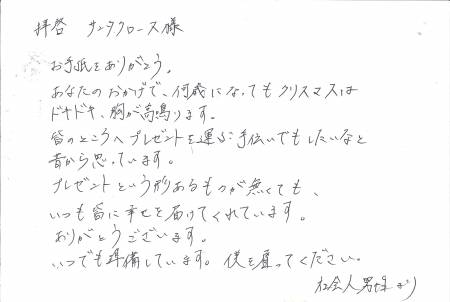 拝啓 サンタクロース様
お手紙をありがとう。
あなたのおかげで、何歳になってもクリスマスは
ドキドキ、胸が高鳴ります。
皆のところへプレゼントを運ぶ手伝いでもしたいなと
昔から思っています。
プレゼントという形あるものが無くても、
いつも皆に幸せを届けてくれています。
ありがとうございます。
いつでも準備しています。僕を雇ってください。
社会人男性より